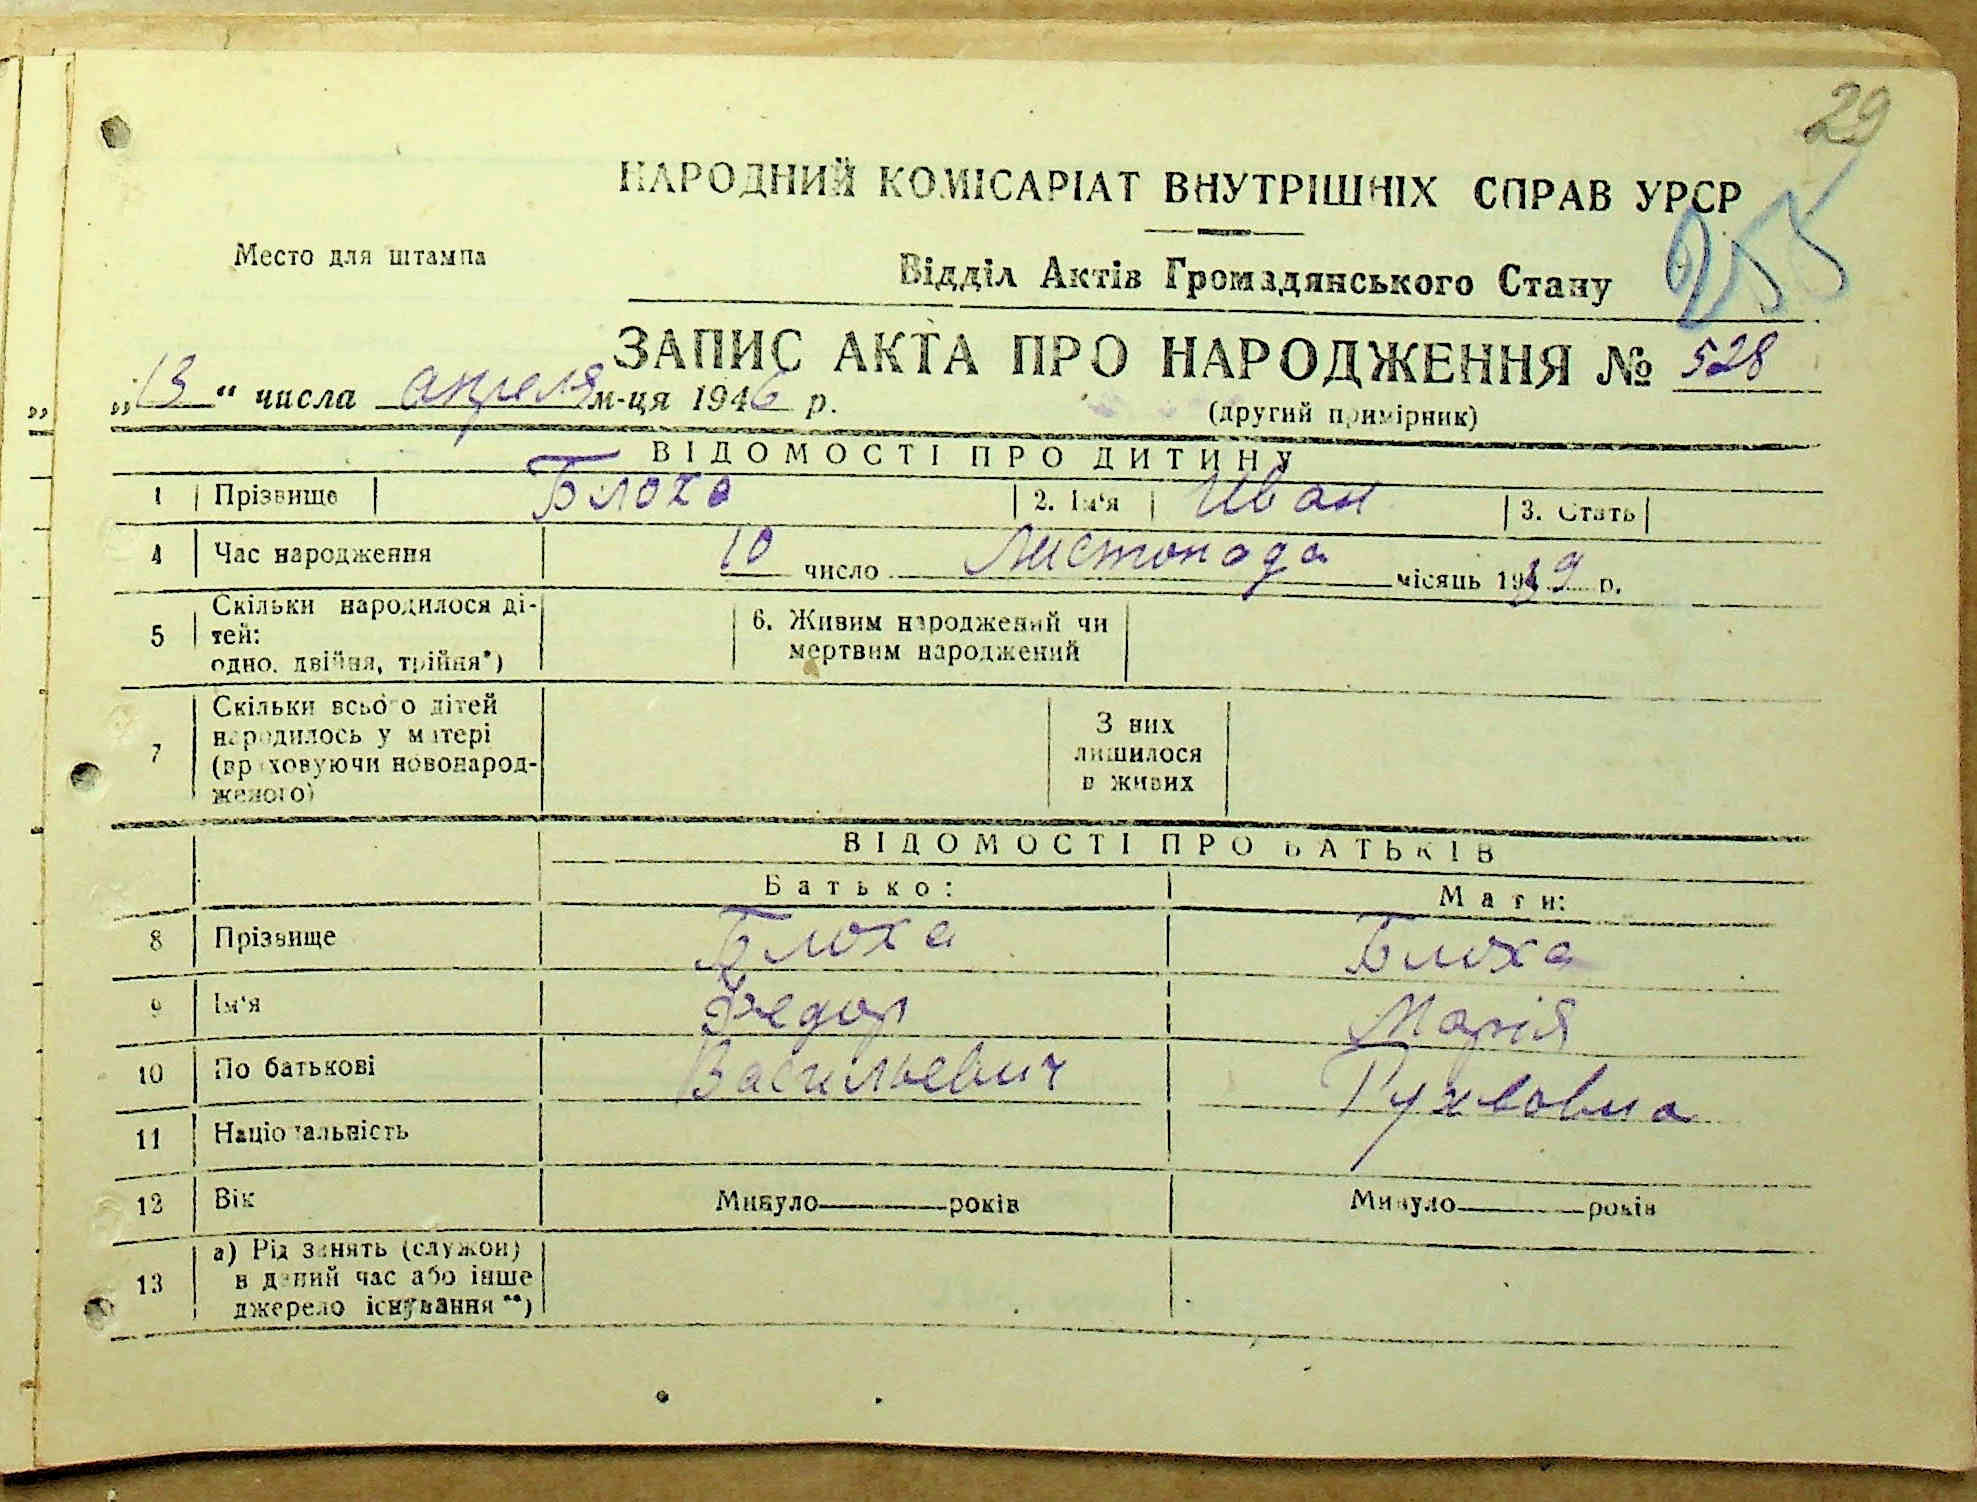 29
НАРОДНИЙ КОМІСАРІАТ ВНУТРІШНІХ СПРАВ УРСР
255
Место для штампа
Відділ Актів Громадянського Стану
ЗАПИС АКТА ПРО НАРОДЖЕННЯ № 528
„13“ числа апреля м-ця 1946 р.
(другий примірник)
ВІДОМОСТІ ПРО ДИТИНУ
1 Прізвище Блоха 2. Ім‘я Иван 3. Стать
4 Час народження 10 число Листопада місяць 1939 р.
5 Скільки народилося ді-
тей:
одно, двійня, трійня*)
6. Живим народжений чи
мертвим народжений
7 Скільки всього дітей
народилось у матері
(враховуючи новонарод-
женого)
З них
лишилося
в живих
ВІДОМОСТІ ПРО БАТЬКІВ
Батько: Мати:
8 Прізвище Блоха Блоха
9 Ім‘я Федор Марія
10 По батькові Васильевич
11 Національність
12 Вік Минуло ров років Минуло років
13 а) Рід занять (служби)
в даний час або інше
джерело існування **)